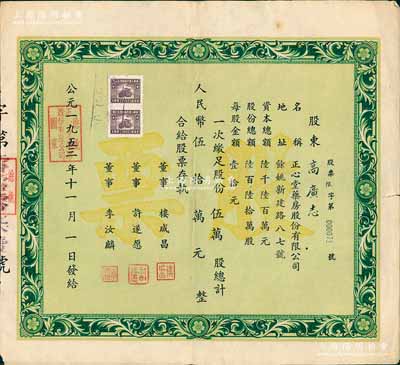 股票陸字第 000071 號
股東 高廣志
名稱 正心堂藥房股份有限公司
地址 餘姚新建路八七號
資本總額 陸千陸百萬元
股份總額 陸百陸拾萬股
每股金額 壹拾元
一次繳足股份 伍萬 股總計
人民幣 伍拾萬 元整
合給股票存執
董事 樓成昌
董事 許遂愿
董事 李汝麟
公元一九五三年十一月一日發給
股票
字第
號